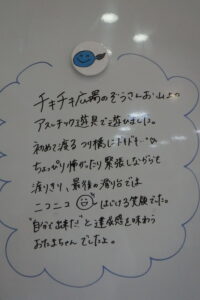 チキチキ広場のぞうさんお山より
アスレチック遊具で遊びました。
初めて渡るつり橋にドキドキ
ちょっぴり怖がったり緊張しながらも
渡りきり、最後の滑り台では
ニコニコ はじける笑顔でした。
"自分で出来た"と達成感を味わう
おたまちゃんでしたよ。